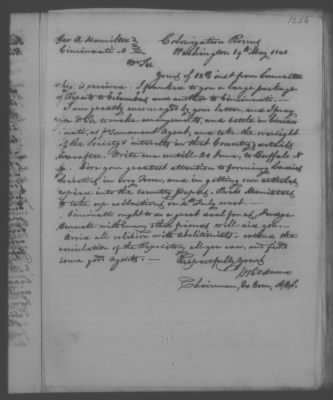 1256
Rev A Hamilton
Cincinnati O
Colonization Rooms
Washington 19th May 1841
Dr Sir
Yours of 12th inst from Lancaster
Ohio, is received. I send to you a large package
to Columbus and another to Cincinnati.
I am greatly encouraged by your letter, and I pray
you to make arrangements, and settle in Cincin
nati, as permanent Agent, and take the oversight
of the Society's interests in that Country
hereafter. Write me until 20 June, to Buffalo N
Y. Give your greatest attention to forming Ladies
Societies in large Towns, and in getting our articles
copied into the Country Papers. Ministers
to take up collections on 4th July next.
Cincinnati ought to do a great deal for us, Judge
Burnett with many other friends will aid you.
Avoid all collision with Abolitionists. extend the
circulation of the Repository all you can, and find
some good agents.
Respectfully Yours
S Wilkeson
Chairman, Ex Com, ACS.